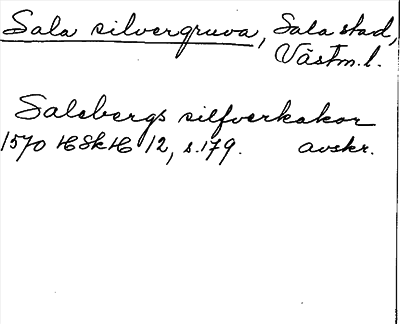 Sala silvergruva, Sala stad,
Västm.l.
Salsbergs silfverkakor
1570 HSkH 12, s.179. avskr.